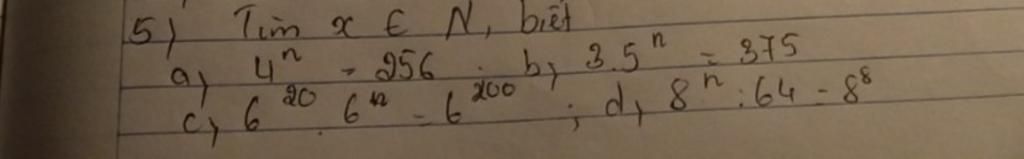 5) Tìm x ∈ N, biết
a) 4ⁿ = 256 . b) 3.5ⁿ = 375
c) 6²⁰ . 6ⁿ = 6²⁰⁰ ; d) 8ⁿ : 64 = 8⁸